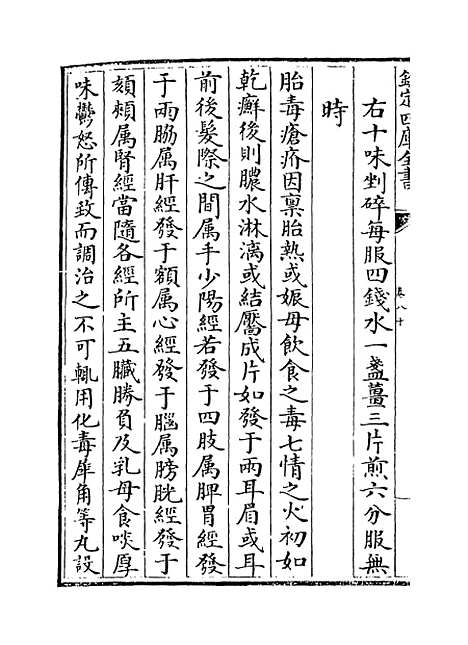 欽定四庫全書
卷八十
右十味剉碎每服四錢水一盞薑三片煎六分服無
時
胎毒瘡疥因禀胎熱或娠母飲食之毒七情之火初如
乾癬後則膿水淋漓或結靨成片如發于兩耳眉或耳
前後髮際之間属手少陽經若發于四肢属脾胃經發
于兩脇属肝經發于額属心經發于腦属膀胱經發于
頦頰属腎經當隨各經所主五臟勝負及乳母食啖厚
味鬱怒所傳致而調治之不可輒用化毒犀角等丸設